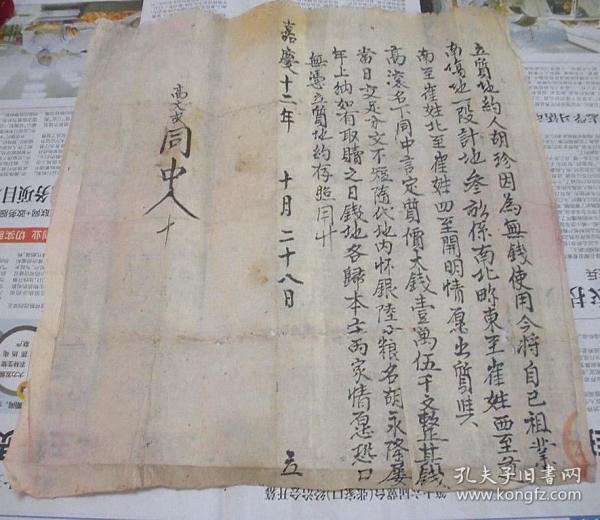 立質地約人胡珍因為無錢使用今將自己祖業
南傷地一段計地叁畝係南北畛東至崔姓西至
南至崔姓北至崔姓四至開明情愿出質與
高滚名下同中言定質價大錢壹萬伍千文整其錢
當日交足分文不短隨代地內怀銀陸分粮名胡永隆屢
年上納如有取贖之日錢地各歸本主兩家情愿恐口
無憑立質地約存照用十
嘉慶十二年 十月 二十八日 立
同中人 高文 十
孔夫子旧书网
www.kongfz.com